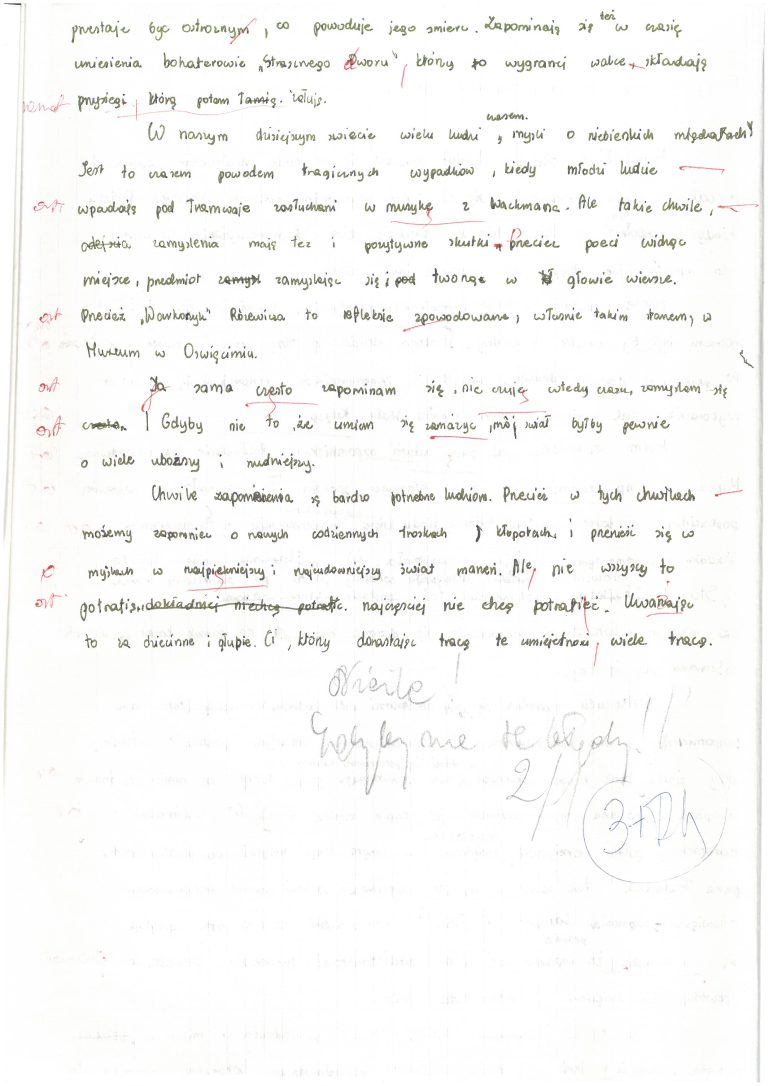 przestaje być ostrożnym, co powoduje jego śmierć. Zapominają się też w czasie
uniesienia bohaterowie „Strasznego Dworu", który po wygranej walce, składają
przysięgi, którą potem łamią. żałują.
W naszym dzisiejszym świecie wielu ludzi czasem, myśli o niebieskich migdałach
Jest to czasem powodem tragicznych wypadków, kiedy młodzi ludzie
ort wpadają pod tramwaje zasłuchani w muzykę z Wackmana. Ale takie chwile,
zamyslenia mają tez i pozytywne skutki. Przeciez poeci widząc
miejsce, przedmiot zamyslając się i tworzą w głowie wiersze.
ort Przecież „Warkoczyk" Różewicza to refleksje spowodowane, właśnie takim stanem, w
Muzeum w Oswięcimiu.
ort Ja sama często zapominam się, nie czuję wtedy czasu, zamyslam się
ort Gdyby nie to, że umiem się zamazyc, mój swiat byłby pewnie
o wiele uboższy i nudniejszy.
Chwile zapomnienia są bardzo potrzebne ludziom. Przecież w tych chwilkach
możemy zapomniec o naszych codziennych troskach, kłopotach, i przenieść się w
myslach w najpiękniejszy i najcudowniejszy świat marzeń. Ale, nie wszyscy to
ort potrafią, dokładniej niechcą potrafic. najczęsciej nie chcą potrafiec. Uwazając
to za dziecinne i głupie. Ci, który dorastając tracą te umiejętnosci, wiele tracą.
Nieźle!
Gdyby nie te błędy!!
2/
3+